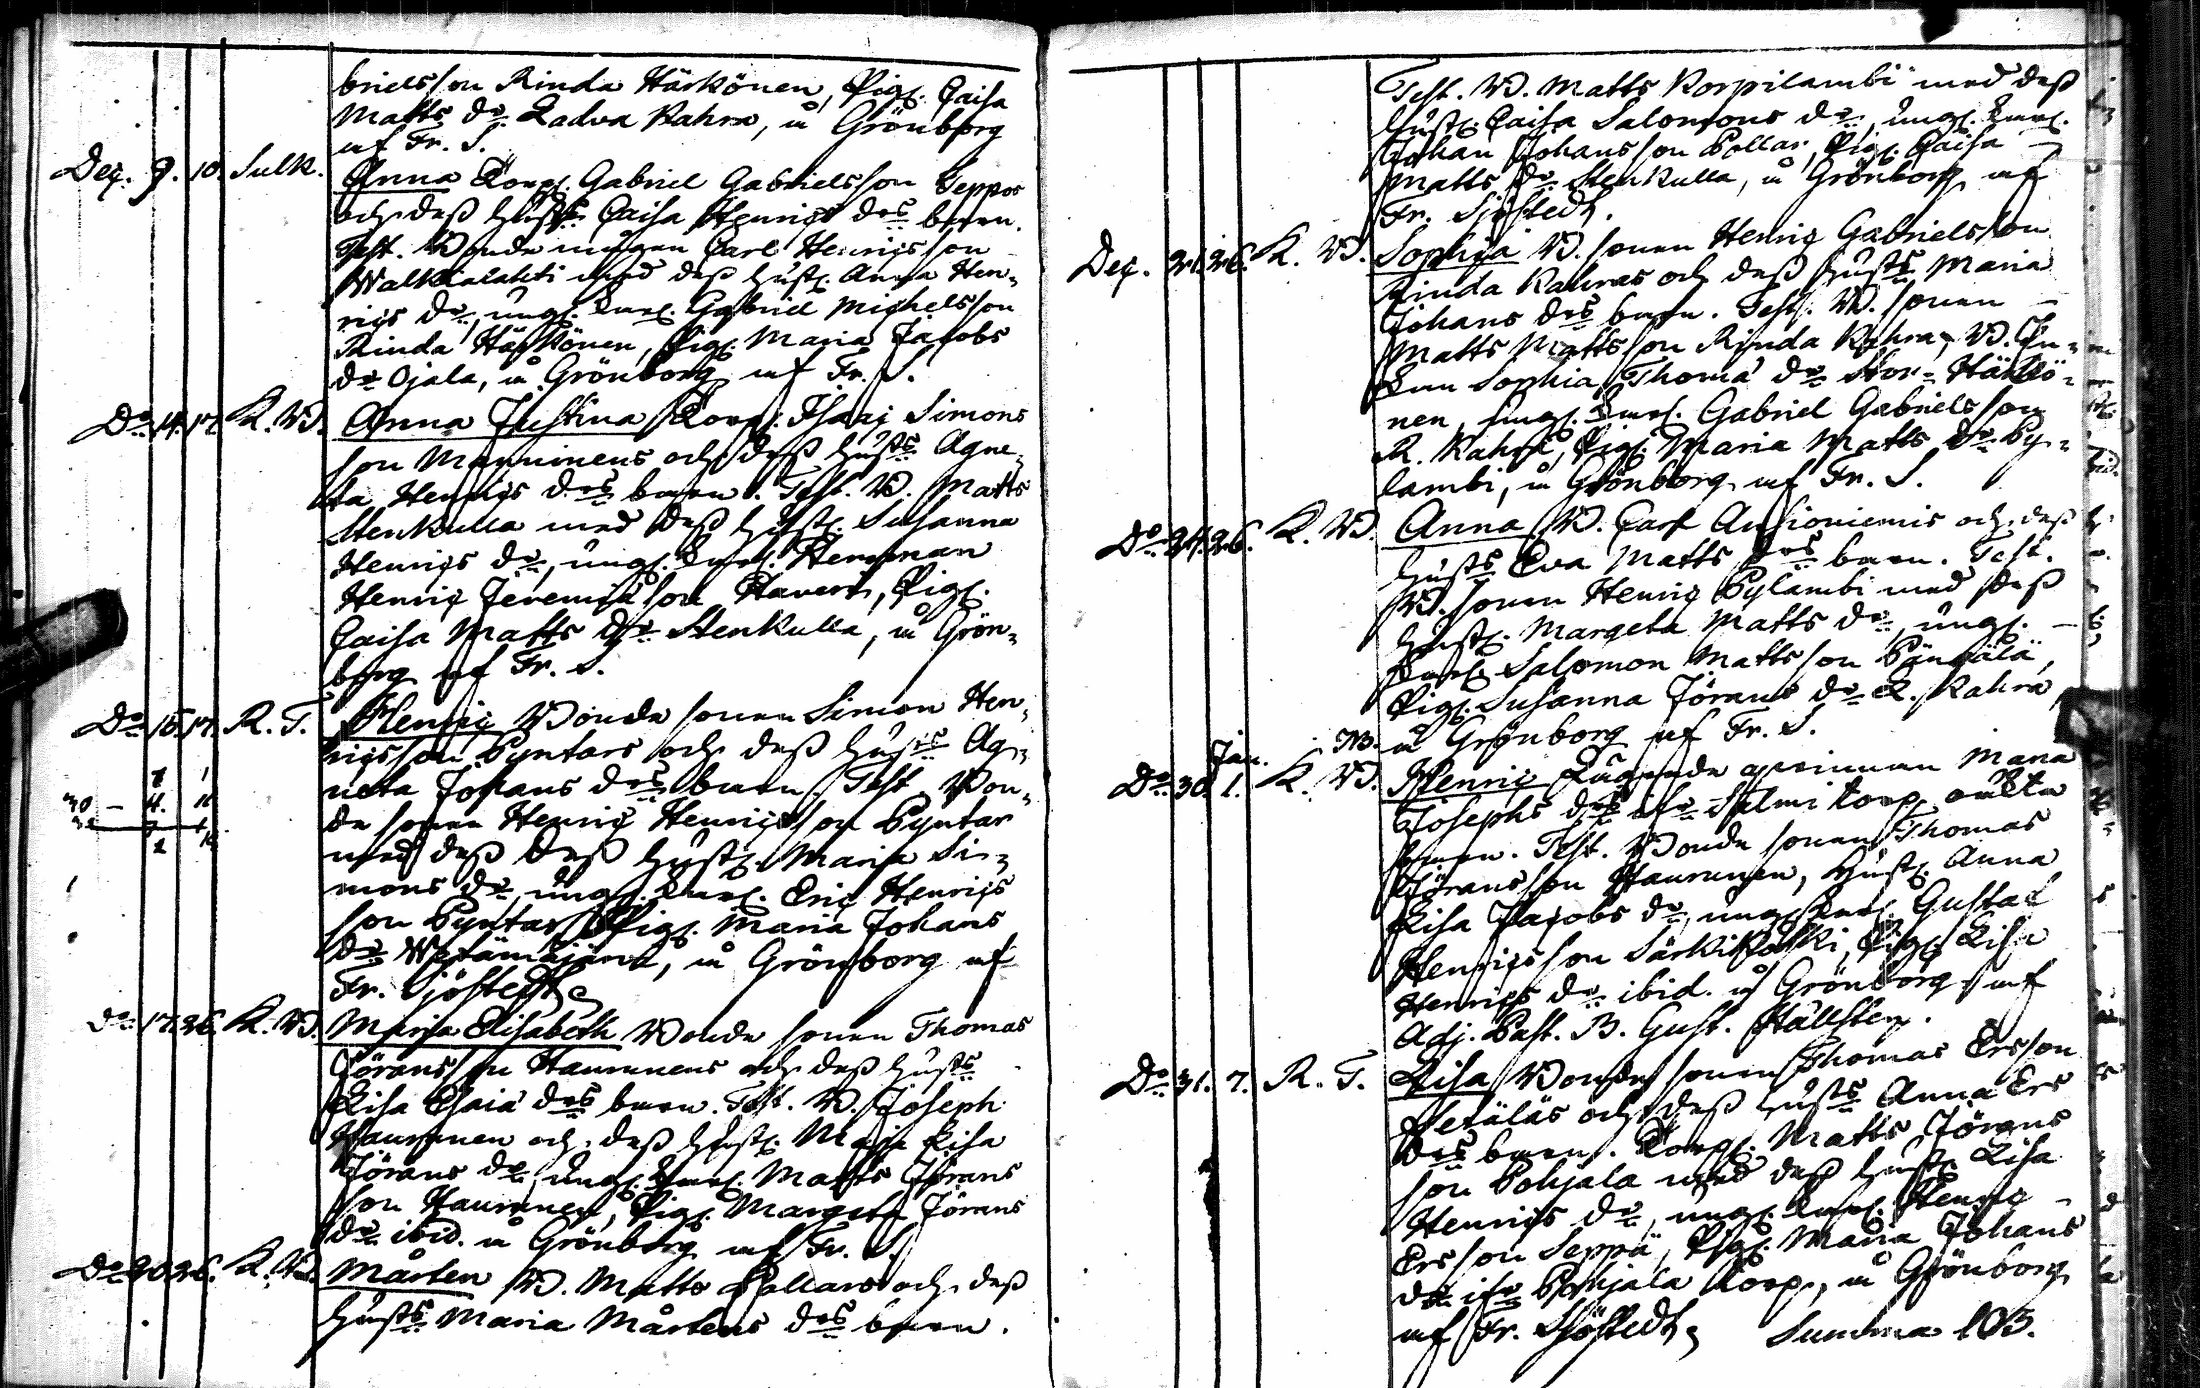 brielsson Rinda Härkönen, Pig. Caisa
Matts dr. Ladva Kahra, in Grönborg
af Fr. S.
Dec. 9. 10. Sulk. Anna Torp. Gabriel Gabrielsson Seppos
och dess hustrs Caisa Henrics drs barn.
Test. Bonde mågen Carl Henricsson
Walkialahti med dess hust. Anna Hen-
rics dr, ung. Dræ. Gabriel Michelsson
Rinda Härkönen, Pig. Maria Jacobs
dr Ojala, in Grönborg af Fr. S.
Do 14. 17. K. W. Anna Justina Torp. Isaac Simons
son Manninens och dess hustrs Agne-
ta Henrics drs barn. Test. B. Matts
Stenkulla med dess hust. Susanna
Henrics dr, ung. Dræ.
Henric Jeremiæ son Haveri, Pig.
Caisa Matts dr Stenkulla, in Grön-
borg af Fr. S.
Do 15. 17. R. T. Henric Bonde sonen Simon Hen-
ricsson Pyntars och dess hustrs Ag-
neta Johans drs barn. Test. Bon-
de sonen Henric Henricsson Pyntar
med dess dess hust. Maria Si-
mons dr, ung. Dræ. Eric Henrics
son Pyntar, Pig. Maria Johans
dr Wetämäjärvi, in Grönborg af
Fr. Sjöstedt
Do 17. 26. K. W. Maria Elisabeth Bonde sonen Thomas
Jöransson Haurunens och dess hustrs
Lisa Esaiæ drs barn. Test. B. Joseph
Haurunen och dess hust. Maja Lisa
Jörans dr, ung. Dræ. Matts Jörans
son Haurunen, Pig. Margeta Jörans
dr ibid. in Grönborg af Fr. S.
Do 20. 26. K. W. Mårten B. Matts Pollars och dess
hustrs Maria Mårtens drs barn.
Test. B. Matts Korpilambi med dess
hust. Caisa Salomons dr, ung. Dræ.
Johan Johansson Pollar, Pig. Caisa
Matts dr Stenkulla, in Grönborg af
Fr. Sjöstedt.
Dec. 21. 26. K. W. Sophia B. sonen Henric Gabrielsson
Rinda Kahras och dess hustrs Maria
Johans drs barn. Test. B. sonen
Matts Mattsson Rinda Kahra, B. En-
kan Sophia Thomæ dr Stor-Härkö-
nen, ung. Dræ. Gabriel Gabrielsson
R. Kahra, Pig. Maria Matts dr Py-
lambi, in Grönborg af Fr. S.
Do 24. 26. K. W. Anna B. Carl Ansioniemis och dess
hustrs Eva Matts drs barn. Test.
B. sonen Henric Pylambi med dess
hust. Margeta Matts dr, ung.
Dræ. Salomon Mattsson
Pig. Susanna Jörans dr L. Kahra
NB. in Grönborg af Fr. S.
Jan.
Do 30. 1. K. W. Henric Lagrade qvinnan Maria
Josephs drs ifr. Salmi torp oäkta
barn. Test. Bonde sonen Thomas
Jöransson Haurunen, Hust. Anna
Lisa Jacobs dr, ung. Dræ. Gustaf
Henricsson Särkikoski, Pig. Lisa
Henrics dr ibid. in Grönborg af
Adj. Past. B. Gust. Hällsten.
Do 31. 7. R. T. Lisa Bonde sonen Thomas Ersson
och dess hustrs Anna Ers
drs barn. Torp. Matts Jörans
son Pohjala med dess hust. Lisa
Henrics dr, ung. Dræ. Henric
Ersson Seppä, Pig. Maria Johans
dr ifr. Pohjala Torp, in Grönborg
af Fr. Sjöstedt, Summa 103.